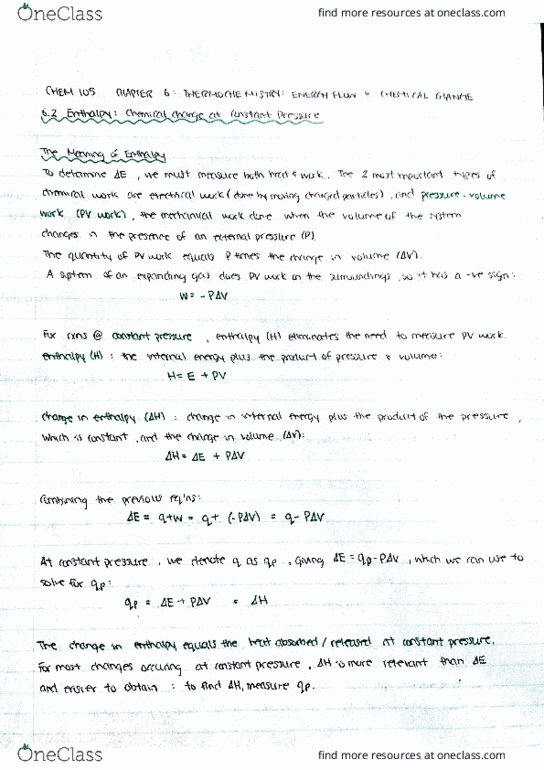 OneClass
find more resources at oneclass.com
CHEM 105 CHAPTER 6: THERMOCHEMISTRY: ENERGY FLOW + CHEMICAL CHANGE
6.2 Enthalpy: Chemical change at Constant Pressure
The Meaning of Enthalpy
To determine ΔE, we must measure both heat & work. The 2 most important types of
chemical work are electrical work (done by moving charged particles), and pressure-volume
work (PV work), the mechanical work done when the volume of the system
changes in the presence of an external pressure (P).
The quantity of PV work equals P times the change in volume (ΔV).
A system of an expanding gas does PV work on the surroundings, so it has a -ve sign:
W = -PΔV
For rxns @ constant pressure, enthalpy (H) eliminates the need to measure PV work.
enthalpy (H): the internal energy plus the product of pressure & volume:
H = E + PV
change in enthalpy (ΔH): change in internal energy plus the product of the pressure,
which is constant, and the change in volume (ΔV):
ΔH = ΔE + PΔV
Combining the previous
ΔE = q+w = q+ (-PΔV) = q-PΔV
At constant pressure, we denote q as qp, giving ΔE = qp-PΔV, which we can use to
solve for qp:
qp = ΔE + PΔV = ΔH
The change in enthalpy equals the heat absorbed/released at constant pressure.
For most changes occuring at constant pressure, ΔH is more relevant than ΔE
and easier to obtain: to find ΔH, measure qp.
OneClass
find more resources at oneclass.com